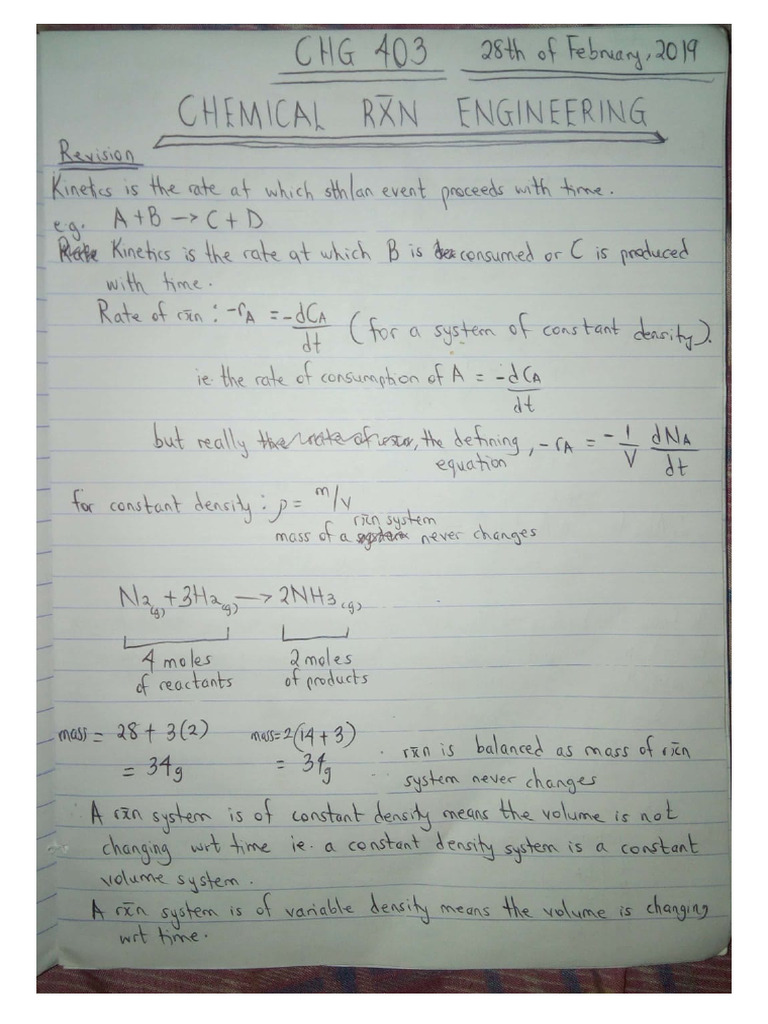 CHG 403 28th of February, 2019
CHEMICAL RX̄N ENGINEERING
Revision
Kinetics is the rate at which sth/an event proceeds with time.
e.g. A + B → C + D
Kinetics is the rate at which B is consumed or C is produced
with time.
Rate of rx̄n : -rA = -dCA/dt (for a system of constant density).
ie. the rate of consumption of A = -dCA/dt
but really, the defining equation, -rA = -1/V dNA/dt
for constant density : ρ = m/V
mass of a rx̄n system never changes
N2(g) + 3H2(g) → 2NH3(g)
4 moles 2 moles
of reactants of products
mass = 28 + 3(2) mass = 2(14 + 3)
= 34g = 34g
. rx̄n is balanced as mass of rx̄n
system never changes
A rx̄n system is of constant density means the volume is not
changing wrt time ie. a constant density system is a constant
volume system.
A rx̄n system is of variable density means the volume is changing
wrt time.